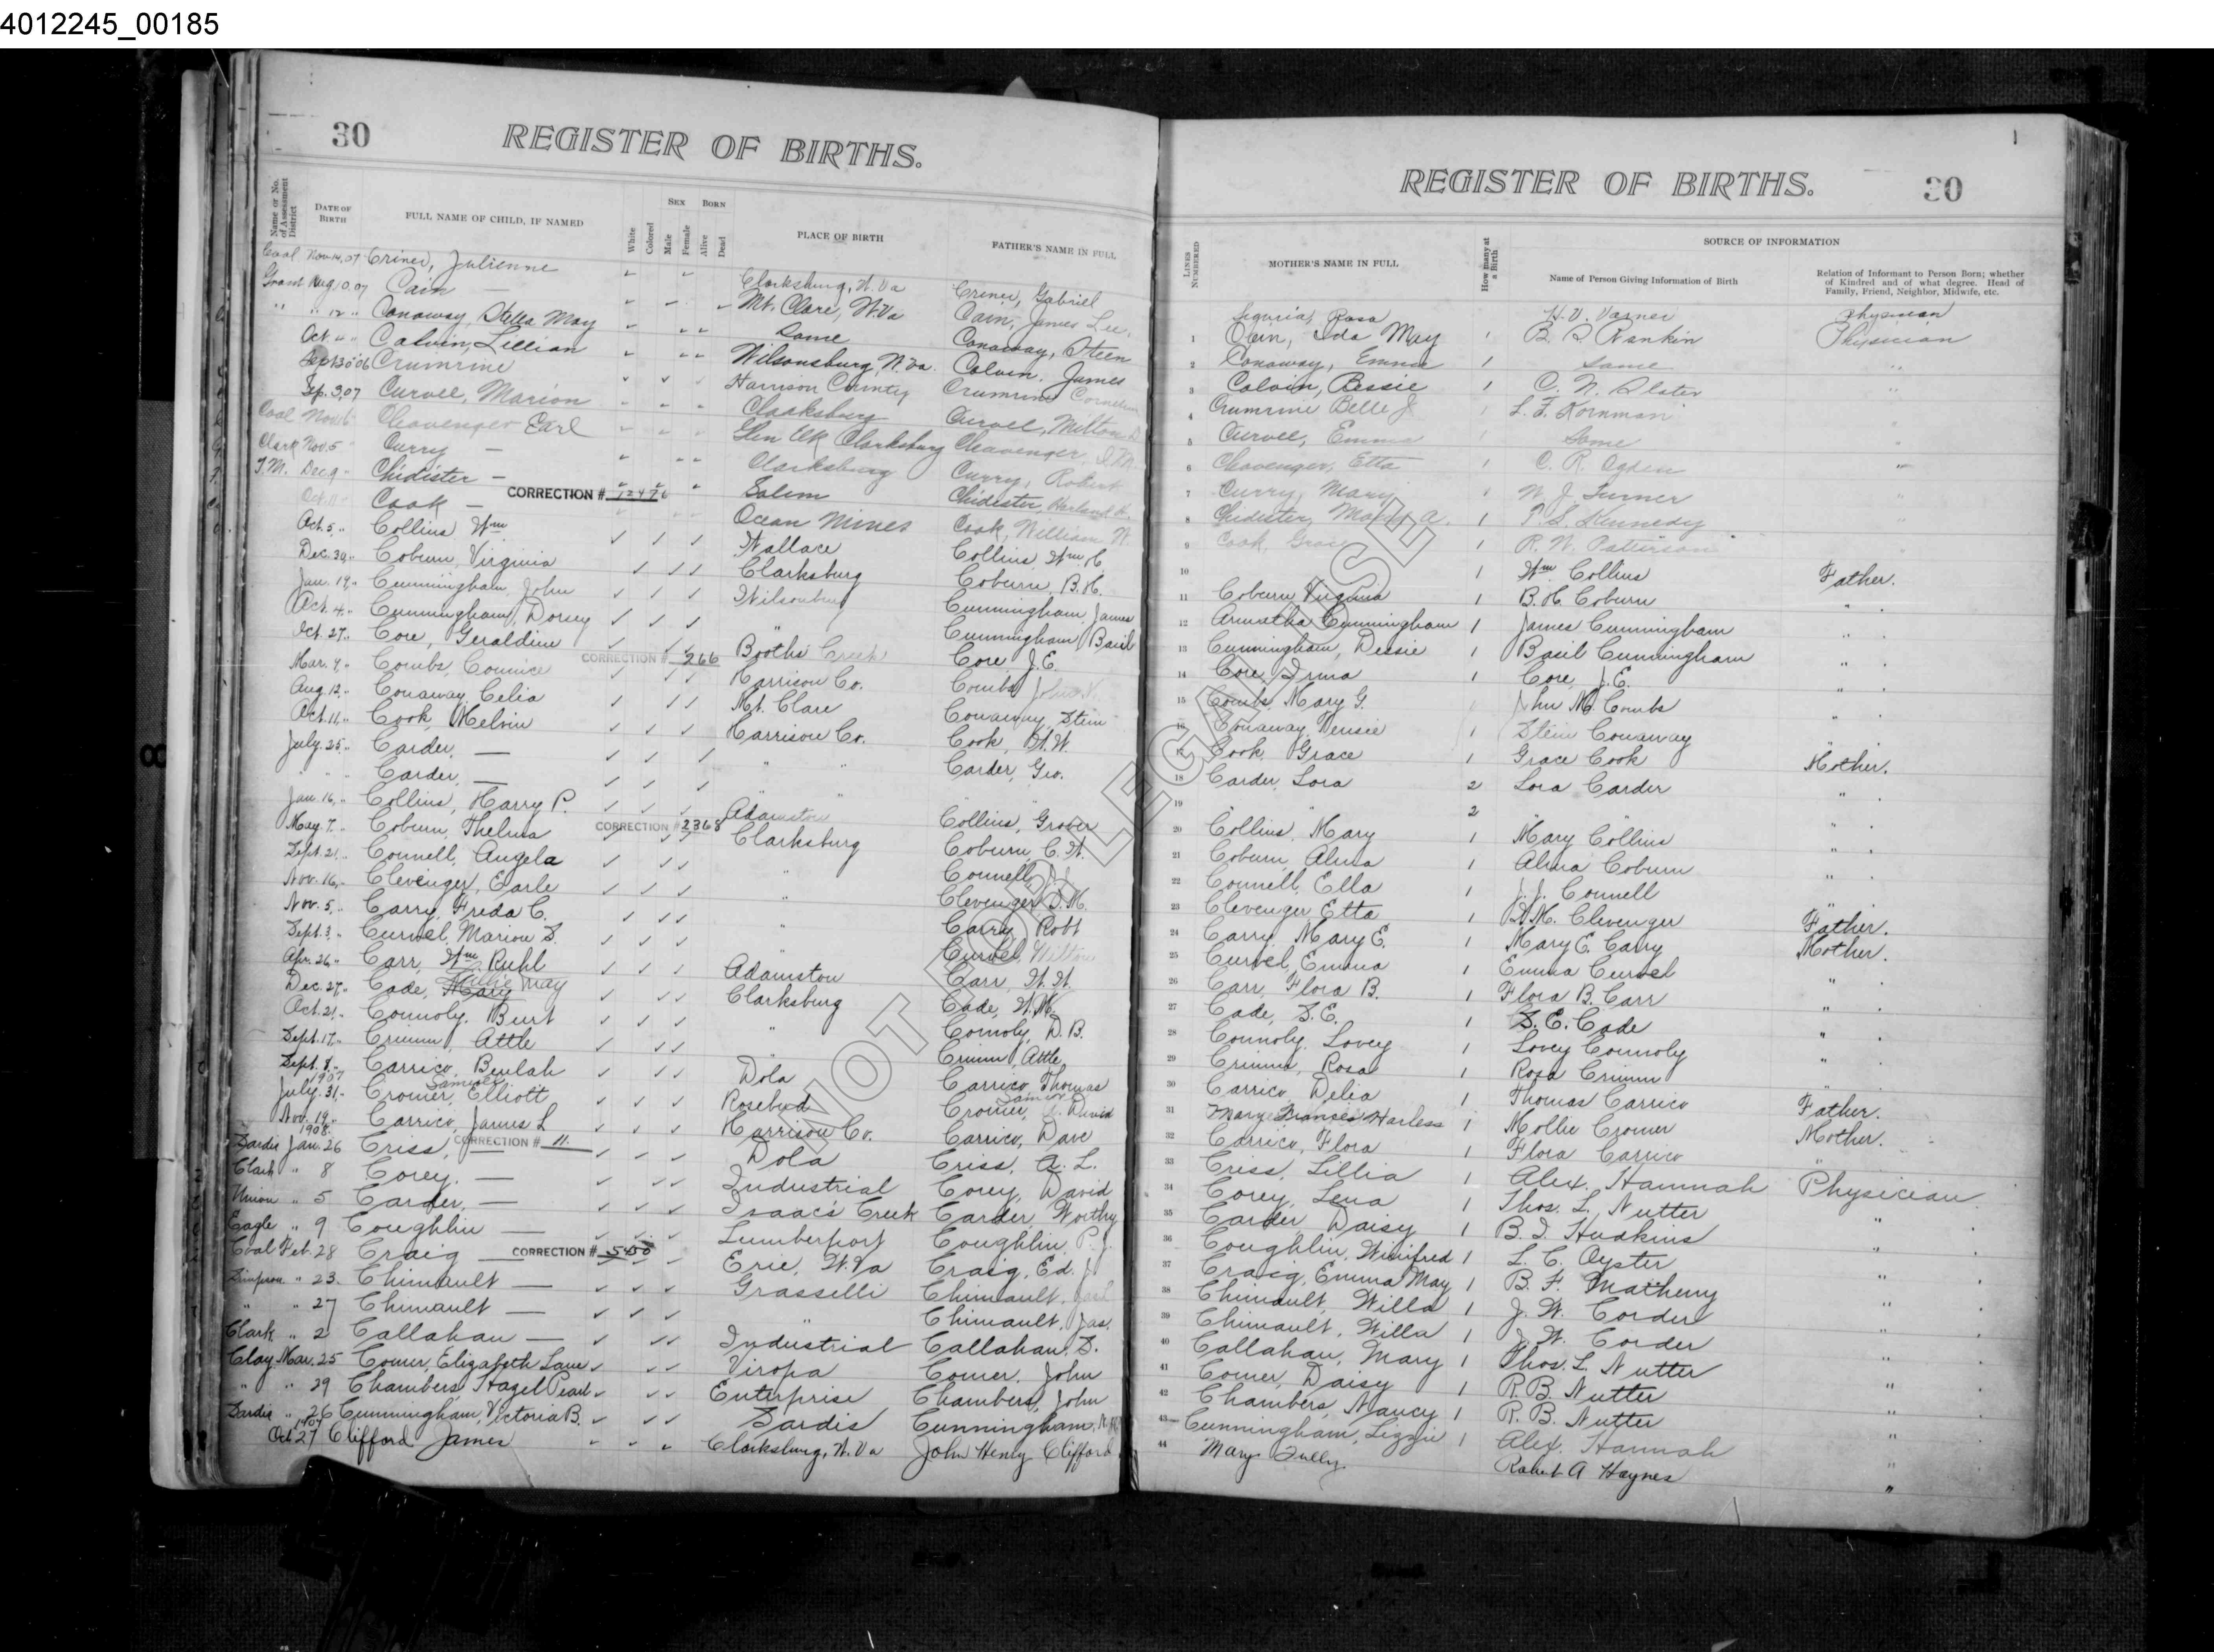 4012245_00185
30 REGISTER OF BIRTHS.
Name or No. of Assessment District
DATE OF BIRTH
FULL NAME OF CHILD, IF NAMED
White
Colored
SEX
Male
Female
BORN
Alive
Dead
PLACE OF BIRTH
FATHER'S NAME IN FULL
Coal Nov 14, 07 Criner, Julienne Clarksburg, W. Va Criner, Gabriel
Grant Aug 10 07 Cain — Mt. Clare, W. Va Cain, James Lee
" " 12 " Conaway, Stella May Same Conaway, Steen
Oct. 4 " Calvin, Lillian Wilsonsburg, W. Va. Calvin, James
Sept 30 06 Crumrine Harrison County Crumrine
Sep. 3, 07 Curvee, Marion Clarksburg Curvee, Milton
Coal Nov 16 Cleavenger Earl Glen Elk Clarksburg Cleavenger
Clark Nov. 5 Curry — Clarksburg Curry, Robert
T.M. Dec. 9 Chidister — CORRECTION # 12476 Salem Chidister, Harland
Oct. 11 Cook — Ocean Mines Cook, William W.
Oct. 5 " Collins, Wm Wallace Collins, Wm. H.
Dec. 30 " Coburn, Virginia Clarksburg Coburn, B. H.
Jan. 19 " Cunningham, John Wilsonburg Cunningham, James
Oct. 4 " Cunningham, Dorsey " Cunningham, Basil
Oct. 27 " Core, Geraldine Booths Creek Core J. E.
CORRECTION # 266
Mar. 9 " Combs, Connice Harrison Co. Combs, John
Aug. 12 " Conaway, Celia Mt. Clare Conaway, Stein
Oct. 11 " Cook, Melvin Harrison Co. Cook, W. W.
July 25 " Carder, — " " Carder, Geo.
" " Carder, — " "
Jan. 16 " Collins, Harry P. Adamston Collins, Grover
May 7 " Coburn, Thelma CORRECTION # 2368 Clarksburg Coburn, C. W.
Sept. 21 " Connell, Angela " Connell, J. J.
Nov. 16 " Clevenger, Earle " Clevenger, D. M.
Nov. 5 " Carry, Freda C. " Carry Robt
Sept. 3 " Curvel, Marion S. " Curvel, Milton
Apr. 26 " Carr, Wm. Ruhl Adamston Carr, W. W.
Dec. 27 " Cade, May Clarksburg Cade, W. M.
Oct. 21 " Connoly, Burt " Connoly, D. B.
Sept. 17 " Crimm, Attle " Crimm, Attle
Sept. 8 " Carrico, Beulah Dola Carrico, Thomas
1907
July 31 " Cromer, Samuel Elliott Rosebud Cromer, David
Nov. 19 " Carrico, James L Harrison Co. Carrico, Dave
1908.
Sardis Jan. 26 Criss, — CORRECTION # 11. Dola Criss, A. L.
Clark " 8 Corey, — Industrial Corey, David
Union " 5 Carder, — Isaacs Creek Carder, Worthy
Eagle " 9 Coughlin — Lumberport Coughlin, P. J.
Coal Feb. 28 Craig — CORRECTION # 5450 Erie, W. Va Craig, Ed. J.
Simpson " 23. Chimault — Grasselli Chimault,
" " 27 Chimault — " Chimault, Jas.
Clark " 2 Callahan — Industrial Callahan, S.
Clay Mar. 25 Comer, Elizabeth Lane Viropa Comer, John
" " 29 Chambers, Hazel Pearl Enterprise Chambers, John
Sardis " 26 Cunningham, Victoria B. Sardis Cunningham,
1907
Oct 27 Clifford James Clarksburg, W. Va John Henry Clifford
REGISTER OF BIRTHS. 30
LINES NUMBERED
MOTHER'S NAME IN FULL
How many at a Birth
SOURCE OF INFORMATION
Name of Person Giving Information of Birth
Relation of Informant to Person Born; whether of Kindred and of what degree. Head of Family, Friend, Neighbor, Midwife, etc.
Seguria, Rosa H. V. Varner Physician
1 Cain, Ida May 1 B. S. Rankin Physician
2 Conaway, Emma 1 Same "
3 Calvin, Bessie 1 C. N. Slater "
4 Crumrine Belle J 1 L. F. Kornman "
5 Curvee, Emma 1 Same "
6 Cleavenger, Etta 1 C. R. Ogden "
7 Curry, Mary 1 W. J. Turner "
8 Chidister, Mary A. 1 T. S. Kennedy "
9 Cook, Grace 1 R. W. Patterson "
10 1 Wm. Collins Father.
11 Coburn, Virginia 1 B. H. Coburn "
12 Armatha Cunningham 1 James Cunningham "
13 Cunningham, Dessie 1 Basil Cunningham "
14 Core, Irma 1 Core, J. E. "
15 Combs, Mary G. 1 John M. Combs "
16 Conaway, 1 Stein Conaway "
17 Cook, Grace 1 Grace Cook Mother.
18 Carder, Lora 2 Lora Carder "
19 " " 2 " "
20 Collins, Mary 1 Mary Collins "
21 Coburn, Alma 1 Alma Coburn "
22 Connell, Ella 1 J. J. Connell "
23 Clevenger, Etta 1 D. M. Clevenger Father.
24 Carry, Mary E. 1 Mary E. Carry Mother.
25 Curvel, Emma 1 Emma Curvel "
26 Carr, Flora B. 1 Flora B. Carr "
27 Cade, S. E. 1 S. E. Cade "
28 Connoly, Lovey 1 Lovey Connoly "
29 Crimm, Rosa 1 Rosa Crimm "
30 Carrico, Delia 1 Thomas Carrico Father.
31 Mary Frances Harless 1 Mollie Cromer Mother.
32 Carrico, Flora 1 Flora Carrico "
33 Criss, Lillia 1 Alex. Hannah Physician
34 Corey, Lena 1 Thos. L. Nutter "
35 Carder, Daisy 1 B. I. Hudkins "
36 Coughlin, Winifred 1 L. C. Oyster "
37 Craig, Emma May 1 B. F. Matheny "
38 Chimault, Willa 1 J. W. Corder "
39 Chimault, Willa 1 J. W. Corder "
40 Callahan, Mary 1 Thos. L. Nutter "
41 Comer, Daisy 1 R. B. Nutter "
42 Chambers, Nancy 1 R. B. Nutter "
43 Cunningham, Lizzie 1 Alex. Hannah "
44 Mary Tully Robert A Haynes "
NOT FOR LEGAL USE